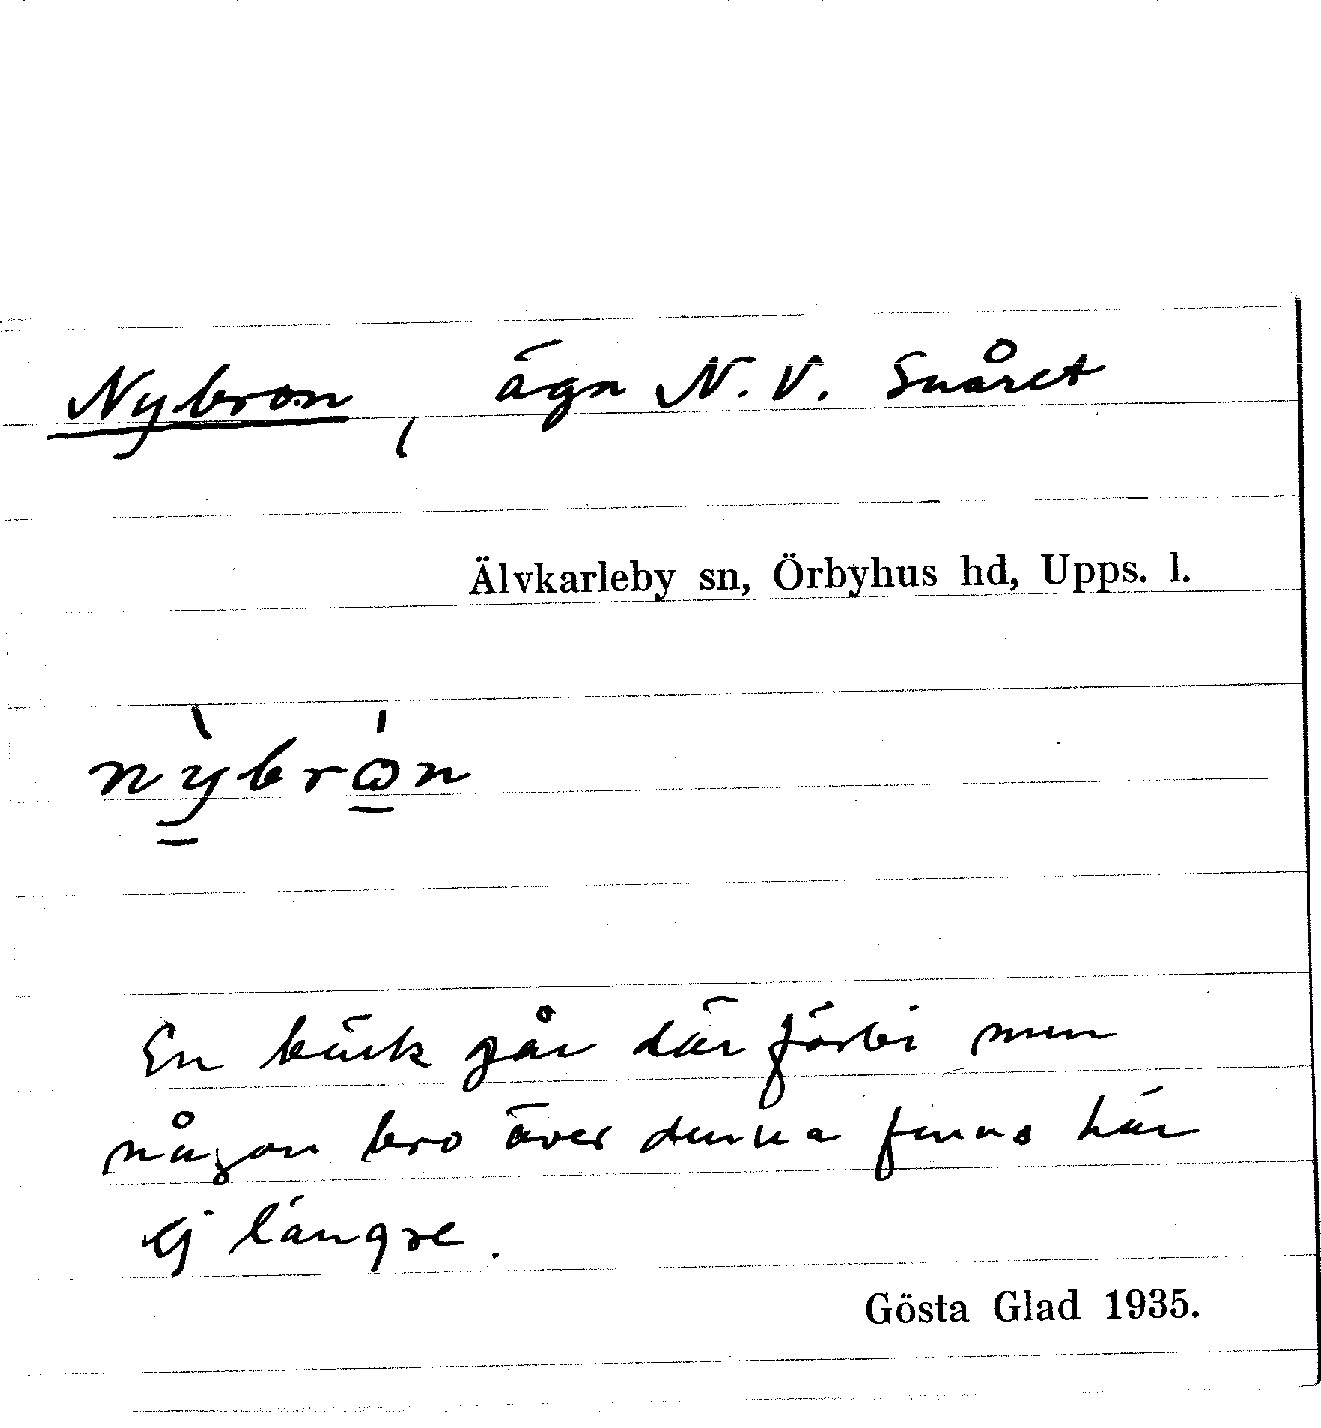 Nybron, ägn N.V. Snåret
Älvkarleby sn, Örbyhus hd, Upps. l.
nỳbrώn
En bäck går där förbi men
någon bro över denna finns här
ej längre.
Gösta Glad 1935.